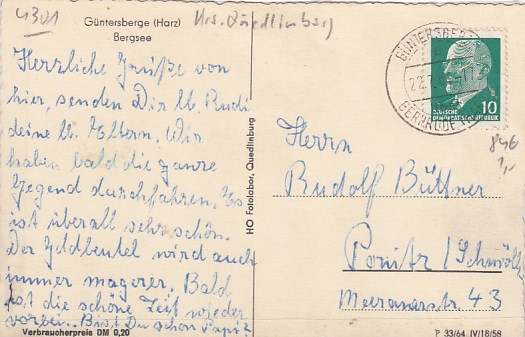 4301
Krs. Quedlinburg
Güntersberge (Harz)
Bergsee
Herzliche Grüße von
hier, senden Dir lb. Rudi
deine lb. Eltern. Wir
haben bald die ganze
Gegend durchfahren. Es
ist überall sehr schön.
Der Geldbeutel wird auch
immer magerer. Bald
ist die schöne Zeit wieder
vorbei. Bist Du schon Papi?
Verbraucherpreis DM 0,20
HO Fotolabor, Quedlinburg
GÜNTERSBERGE
10
DEUTSCHE
DEMOKRATISCHE REPUBLIK
Herrn
Rudolf Büttner
Ponitz/Schmölln
Meeranerstr. 43
P 33/64 IV/18/58